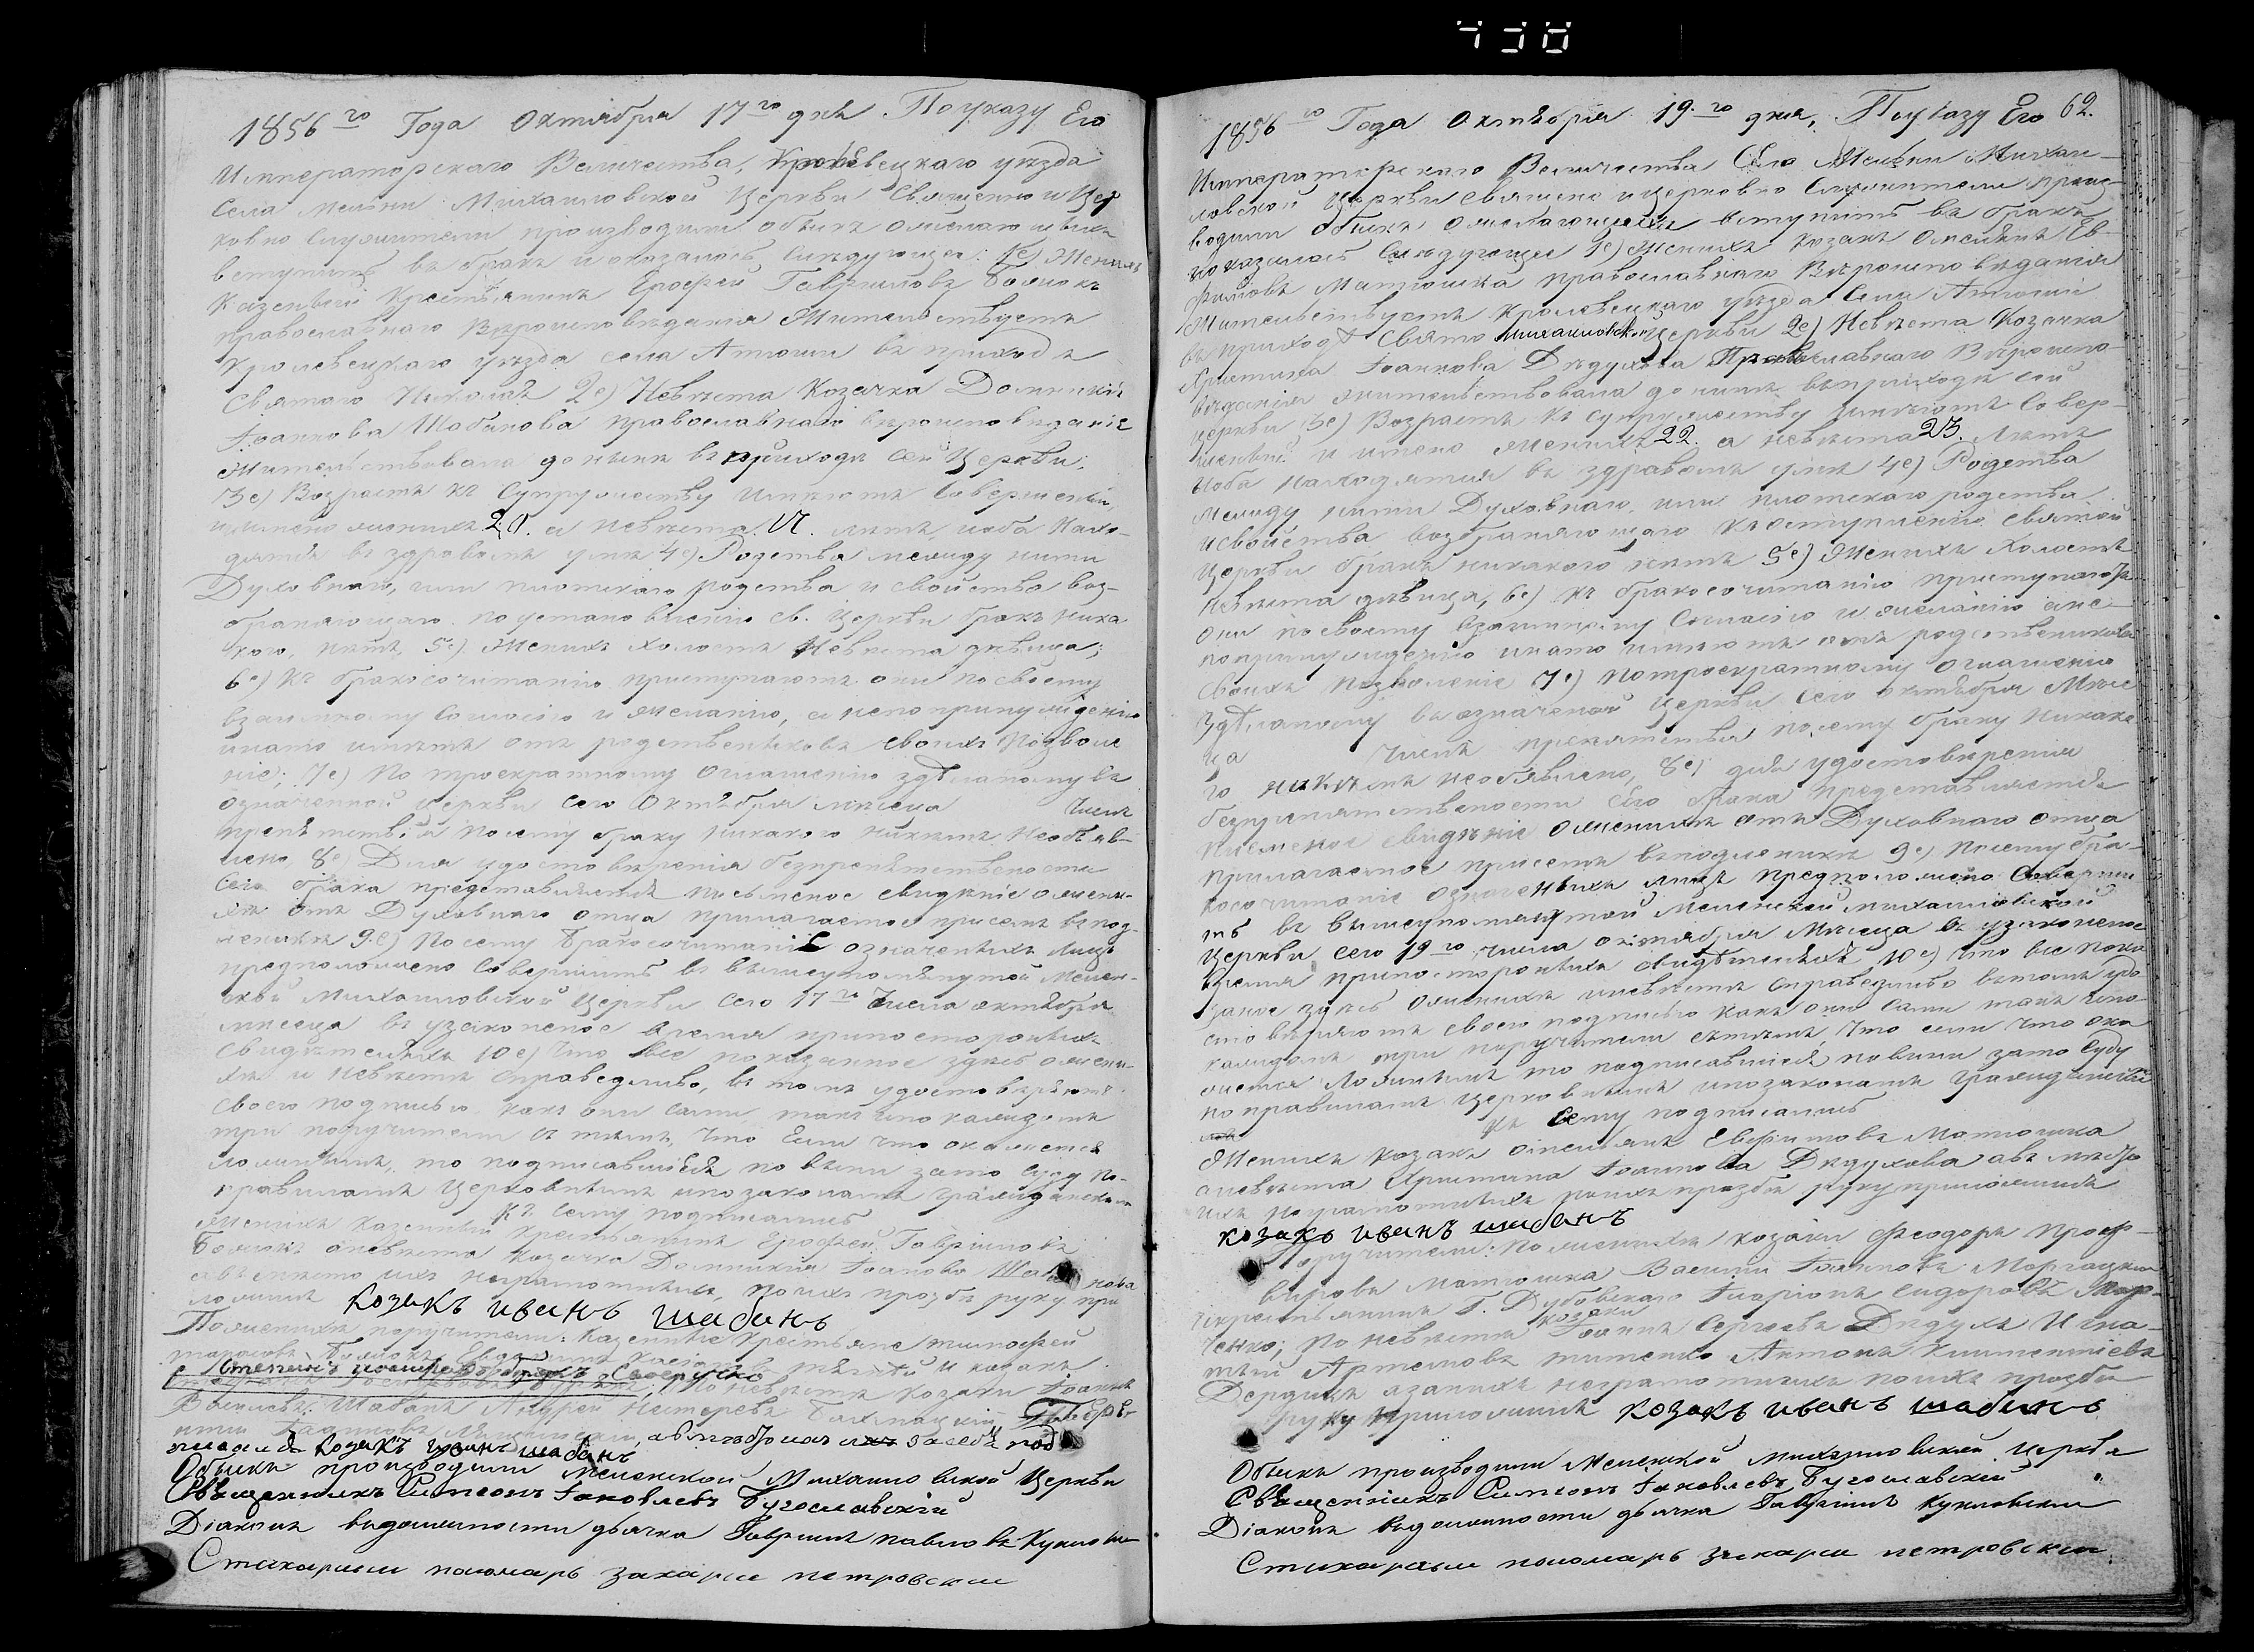 1856го Года Октября 17го дня. По указу Его
Императорскаго Величества, Кролевецкаго уѣзда
Села Мельни Михаиловской Церкви Священно и Цер
ковно Служители производили обыскъ о желающихъ
вступить въ бракъ и оказалось следующее: 1е) Женихъ
Казенный Крестьянинъ Ерофей Гавриловъ
православнаго Вѣроисповѣдания Жительствуетъ
Кролевецкаго уѣзда села Атюши въ приходѣ
Святого Николая 2е) Невѣста Козачка Домникия
Іоаннова Шабанова православнаго вѣроисповѣдания
Жительствовала до нынѣ въ приходѣ сей Церкви.
3е) Возрастъ къ Супружеству имѣютъ совершенный,
а невѣста лѣтъ, и оба нахо-
дятся въ здравомъ умѣ 4е) Родства между ними
Духовнаго, или плотскаго родства и свойства воз-
браняющаго по установлению св. Церкви бракъ ника
кого нѣтъ, 5е) Женихъ холостъ Невѣста дѣвица;
6е) Къ бракосочитанию приступаютъ они по своему
взаимному Согласию и желанию, а не по принуждению
и на то имѣютъ отъ родственниковъ своихъ позволе
ние; 7е) По троекратному оглашению здѣланому въ
означенной церкви сего Октября мѣсяца числъ
препятствия по сему браку никакого никѣмъ необъяв-
лено 8е) Для удостовѣрения безпрепятственности
сего брака представляется письменое свидѣние о жени-
хѣ отъ Духовнаго отца прилагаемое при семъ въ под-
леникѣ 9е) По сему Бракосочитание означенныхъ лицъ
предположено Совершить въ вышеупомянутой Мелен-
ской Михаиловской Церкви сего 17го Числа октября
мѣсяца въ узаконеное время при постороннихъ
Свидѣтеляхъ 10е) Что все показанное здѣсь о жени-
хѣ и невѣстѣ справедливо, въ томъ удостовѣряютъ
своею подписью какъ они сами, такъ и по каждомъ
три поручители съ тѣмъ, что Если что окажется
ложнымъ, то подписавшиеся повины за то Суду по
правиламъ Церковнымъ и по законамъ гражданскимъ
Къ сему подписались
Женихъ Казенный Крестьянинъ Ерофей Гавриловъ
а невѣста Козачка Домникия Іоаннова Шабанова
а вмѣсто ихъ неграмотныхъ, по ихъ прозбѣ руку при
ложилъ козакъ иванъ шабанъ
По женихѣ поручители: Казенные Крестьяне Тимофей
По невѣстѣ козаки Іоаннъ
Васильевъ Шабанъ Андрей Нестеревъ
козакъ иванъ шабанъ
Обыскъ производили Меленской Михаиловской Церкви
Священникъ Симеонъ Іаковлевъ Бугославский
Діаконъ въ должности дьячка Гавриилъ Павловъ
Стихарный пономарь захарие петровский
62.
1856го Года Октября 19го дня, По указу Его
Императорскаго Величества Села Мельни Михаи-
ловской Церкви священно и церковно Служители произ-
водили Обыскъ о желающихъ вступить въ бракъ
и оказалось Слѣдующее 1е) Женихъ козакъ Омелянъ Ев-
фимовъ Матюшка православнаго Вѣроисповѣдания
Жительствуетъ Кролевецкаго уѣзда Села Атюши
въ приходѣ Свято Михаиловской церкви 2е) Невѣста Козачка
Христина Іоаннова Дѣдухова Православнаго Вѣроиспо-
вѣдания жительствовала до нынѣ въ приходѣ сей
церкви 3е) Возрастъ къ супружеству имѣютъ Совер-
шенный и имено женихъ 22. а невѣста 23. лѣтъ
и оба находятся въ здравомъ умѣ 4е) Родства
между ними Духовнаго, или плотскаго родства
и свойства возбраняющаго къ вступлению святой
церкви бракъ никакого нѣтъ 5е) Женихъ холостъ
Невѣста дѣвица, 6е) къ бракосочитанию приступаютъ
они по своему взаимному Согласию и желанию а не
по принуждению и на то имѣютъ отъ родственниковъ
своихъ позволение 7е) по троекратному оглашению
здѣланому въ означеной Церкви сего октября Мѣся
ца числъ препятствия по сему браку никаке
го никѣмъ необъявлено, 8е) для удостовѣрения
безпрепятственности сего брака представляется
писменое свидѣние о женихѣ отъ Духовнаго отца
прилагаемое при семъ въ подленикѣ 9е) По сему бра-
косочитание означеныхъ лицъ предположено Соверши
ть въ вышеупомянутой Меленской Михаиловской
церкви сего 19го числа октября Мѣсяца въ узаконеное
время при постороннихъ свидѣтеляхъ 10е) Что все пока
заное здѣсь о женихѣ и невѣстѣ справедливо въ томъ удо
стовѣряютъ своею подписью какъ они сами такъ и по
каждомъ три поручители сътѣмъ, что если что ока
жется Ложнымъ то подписавшиеся повины за то Суду
по правиламъ Церковнымъ и по законамъ гражданскимъ
къ сему подписались
Женихъ козакъ Омелянъ Евфимовъ Матюшка
а невѣста Христина Іоаннова Дѣдухова а въ мѣсто
ихъ неграмотныхъ по ихъ прозбѣ руку приложилъ
козакъ иванъ шабанъ
поручители: по женихѣ козаки Феодоръ Проф-
Матюшка Василий Іоанновъ
крестьянинъ Г. Дубовскаго Иларионъ Сидоровъ
ченко; по невѣстѣ козаки Іоаннъ Сергѣевъ Дѣдухъ Игна-
тий Артемовъ Антонъ Климентиевъ
а за нихъ неграмотныхъ по ихъ прозбѣ
руку приложилъ козакъ иванъ шабанъ
Обыскъ производили Меленской Михаиловской церкви
Священникъ Симеонъ Іаковлевъ Бугославский
Діаконъ въ должности дьячка Гавриилъ
Стихарный пономарь захарие петровский